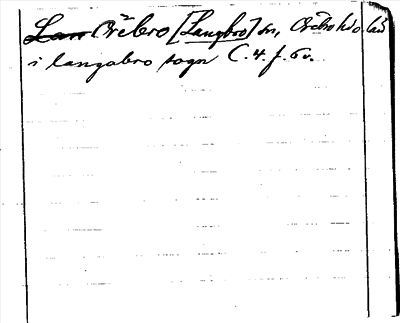 Lan Örebro [Langbro] sn, Örebro h:o. län
i langabro sogn C. 4. f. 6 v.